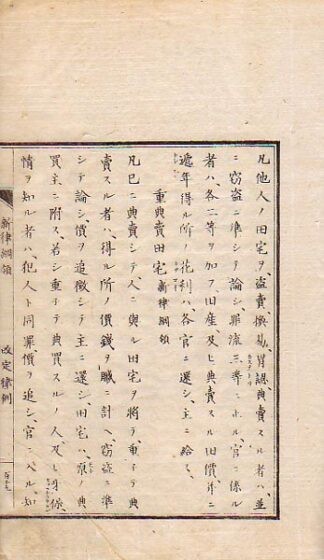 凡他人ノ田宅ヲ、盗賣、換易、冒認、典賣スル者ハ、並
ニ窃盗ニ準シテ論シ、罪流三等ニ止ル、官ニ係ル
者ハ、各二等ヲ加フ、旧産及ヒ典賣スル旧價并ニ
逓年得ル所ノ花利ハ各官ニ還シ、主ニ給ス、
重典賣田宅 新律綱領
凡已ニ典賣シテ、人ニ與ル田宅ヲ將テ、重子テ典
賣スル者ハ、得ル所ノ價錢ヲ贓ニ計ヘ、窃盗ニ準
シテ論シ、價ヲ追徴シテ、主ニ還シ、田宅ハ、原ノ典
買主ニ附ス、若シ重子テ典買スルノ人、及ヒ牙保
情ヲ知ル者ハ、犯人ト同罪價ヲ追シ官ニ入ル、知
新律綱領 改定律例